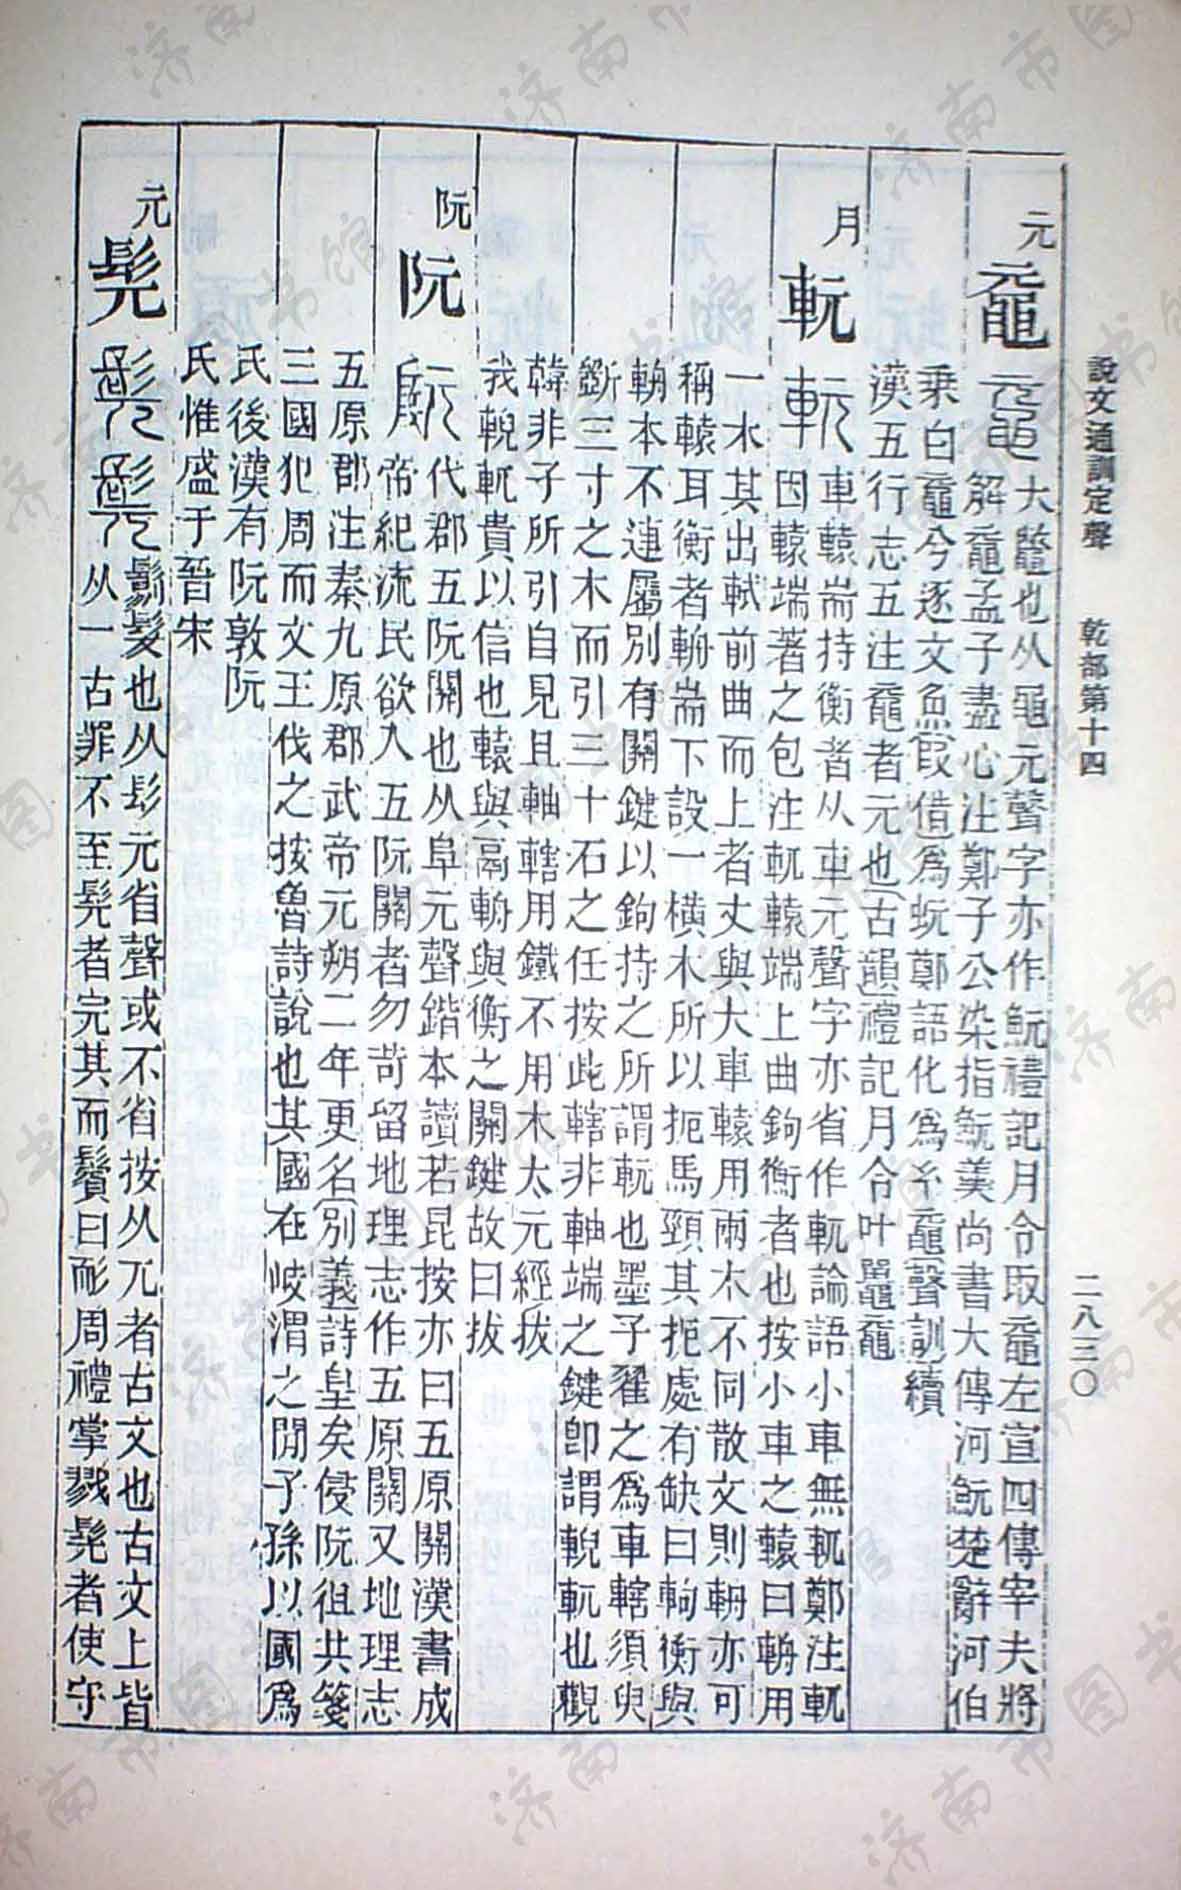 說文通訓定聲 乾部第十四 二八三〇
元
黿
大鼈也从黽元聲字亦作魭禮記月令取黿左宣四傳宰夫將
解黿孟子盡心注鄭子公染指魭羹尚書大傳河魭楚辭河伯
乘白黿兮逐文魚叚借爲蚖鄭語化爲玄黿聲訓續
漢五行志五注黿者元也古韻禮記月令叶鼉黿
月
軏
車轅耑持衡者从車元聲字亦省作軏論語小車無軏鄭注軏
因轅端著之包注軏轅端上曲鉤衡者也按小車之轅曰輈用
一木其出軾前曲而上者丈與大車轅用兩木不同散文則輈亦可
稱轅耳衡者輈耑下設一橫木所以扼馬頸其扼處有缺曰軥衡與
輈本不連屬別有關鍵以鉤持之所謂軏也墨子翟之爲車轄須臾
斲三寸之木而引三十石之任按此轄非軸端之鍵卽謂輗軏也觀
韓非子所引自見且軸轄用鐵不用木太元經拔
我輗軏貴以信也轅與鬲輈與衡之關鍵故曰拔
阮
阮
代郡五阮關也从阜元聲鍇本讀若昆按亦曰五原關漢書成
帝紀流民欲入五阮關者勿苛留地理志作五原關又地理志
五原郡注秦九原郡武帝元朔二年更名別義詩皇矣侵阮徂共箋
三國犯周而文王伐之按魯詩說也其國在岐渭之閒子孫以國爲
氏後漢有阮敦阮
氏惟盛于晉宋
元
髡
鬀髮也从髟元省聲或不省按从兀者古文也古文上皆
从一古罪不至髡者完其而鬢曰耏周禮掌戮髡者使守